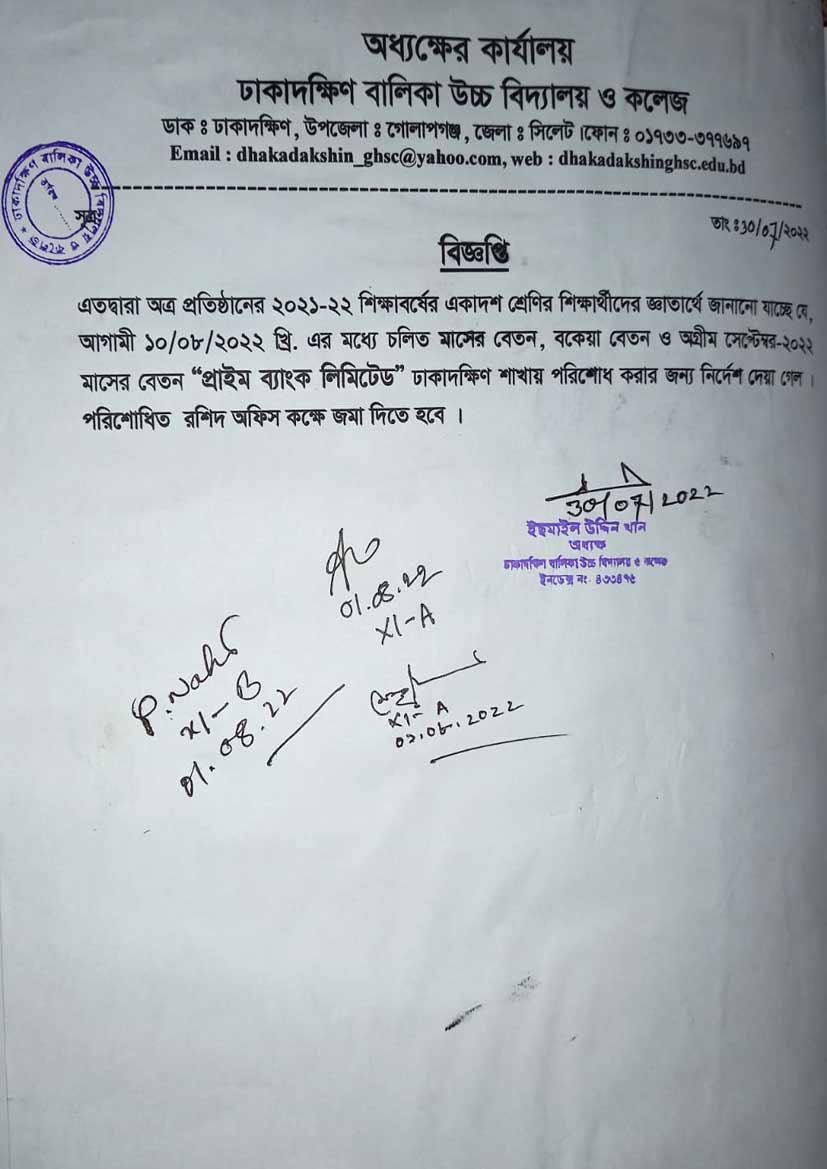 অধ্যক্ষের কার্যালয়
ঢাকাদক্ষিণ বালিকা উচ্চ বিদ্যালয় ও কলেজ
ডাক ঃ ঢাকাদক্ষিণ, উপজেলা ঃ গোলাপগঞ্জ, জেলা ঃ সিলেট ।ফোন ঃ ০১৭৩৩-৭১৭৬৯১
Email : dhakadakshin_ghsc@yahoo.com, web : dhakadakshinghsc.edu.bd
তাং ঃ 30/07/২০২২
বিজ্ঞপ্তি
এতদ্বারা অত্র প্রতিষ্ঠানের ২০২১-২২ শিক্ষাবর্ষের একাদশ শ্রেণির শিক্ষার্থীদের জ্ঞাতার্থে জানানো যাচ্ছে যে,
আগামী ১০/০৮/২০২২ খ্রি. এর মধ্যে চলিত মাসের বেতন, বকেয়া বেতন ও অগ্রীম সেপ্টেম্বর-২০২২
মাসের বেতন “প্রাইম ব্যাংক লিমিটেড” ঢাকাদক্ষিণ শাখায় পরিশোধ করার জন্য নির্দেশ দেয়া গেল ।
পরিশোধিত রশিদ অফিস কক্ষে জমা দিতে হবে ।
30/07/2022
উদ্দিন খান
অধ্যক্ষ
ঢাকাদক্ষিণ বালিকা উচ্চ বিদ্যালয় ও কলেজ
ইনডেক্স নং-
01.08.22
XI-A
XI-B
01.08.22
XI-A